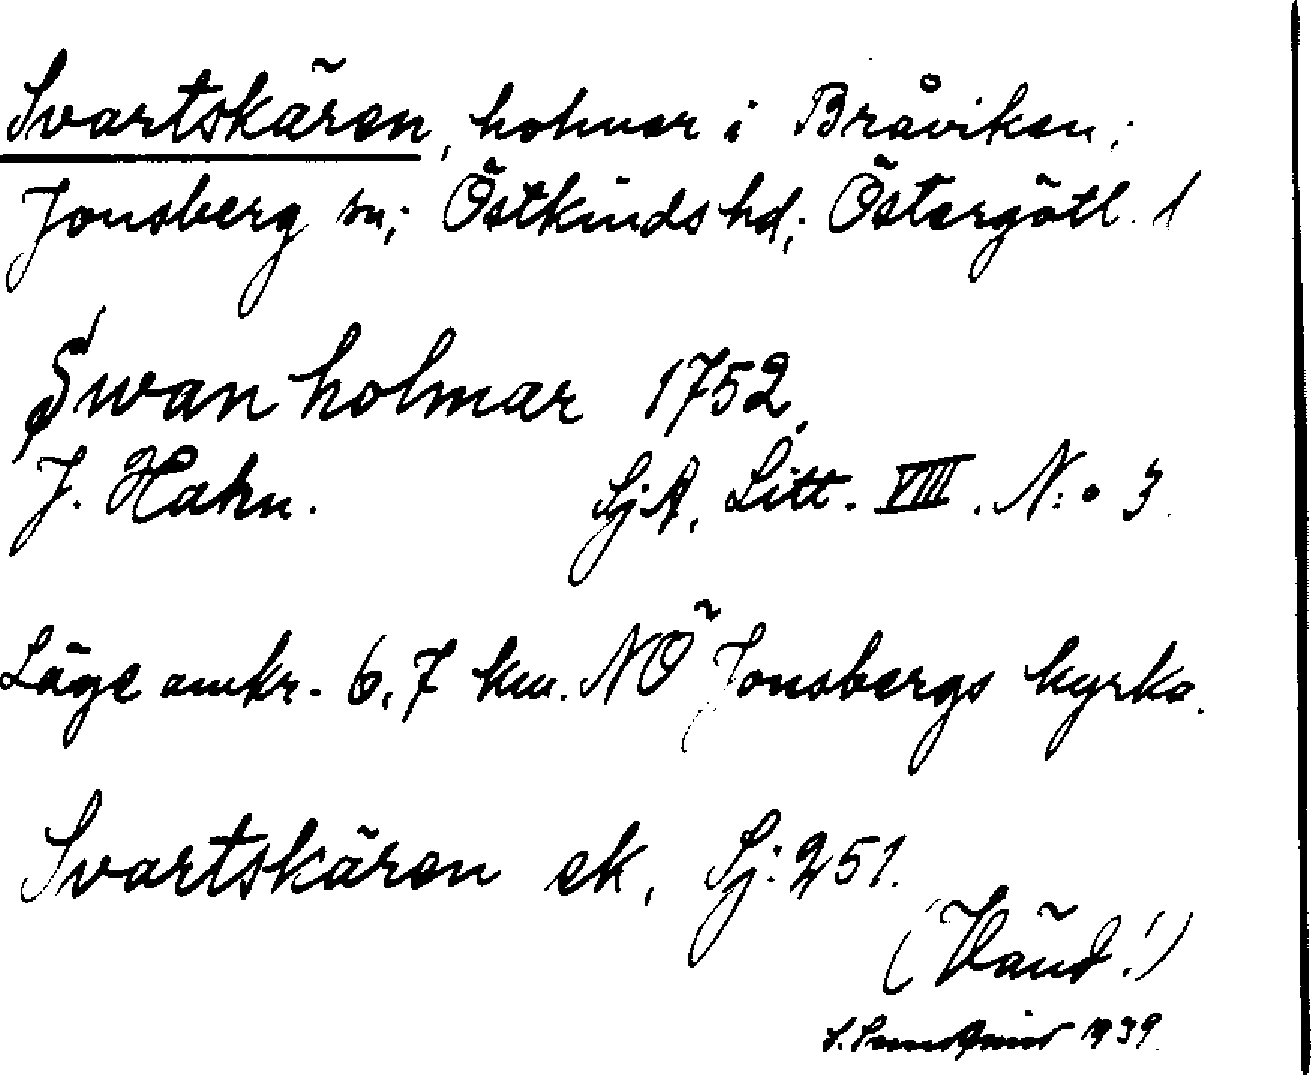 Svartskären, holmar i Bråviken,
Jonsberg sn; Östkinds hd; Östergötl. l
Swan holmar 1752.
J. Hahn. SjA, Litt. VIII. N:o 3.
Läge omkr. 6,7 km. NÖ Jonsbergs kyrka.
Svartskären ek, Sj: 251.
(Vänd!)
S. Sundqvist 1939